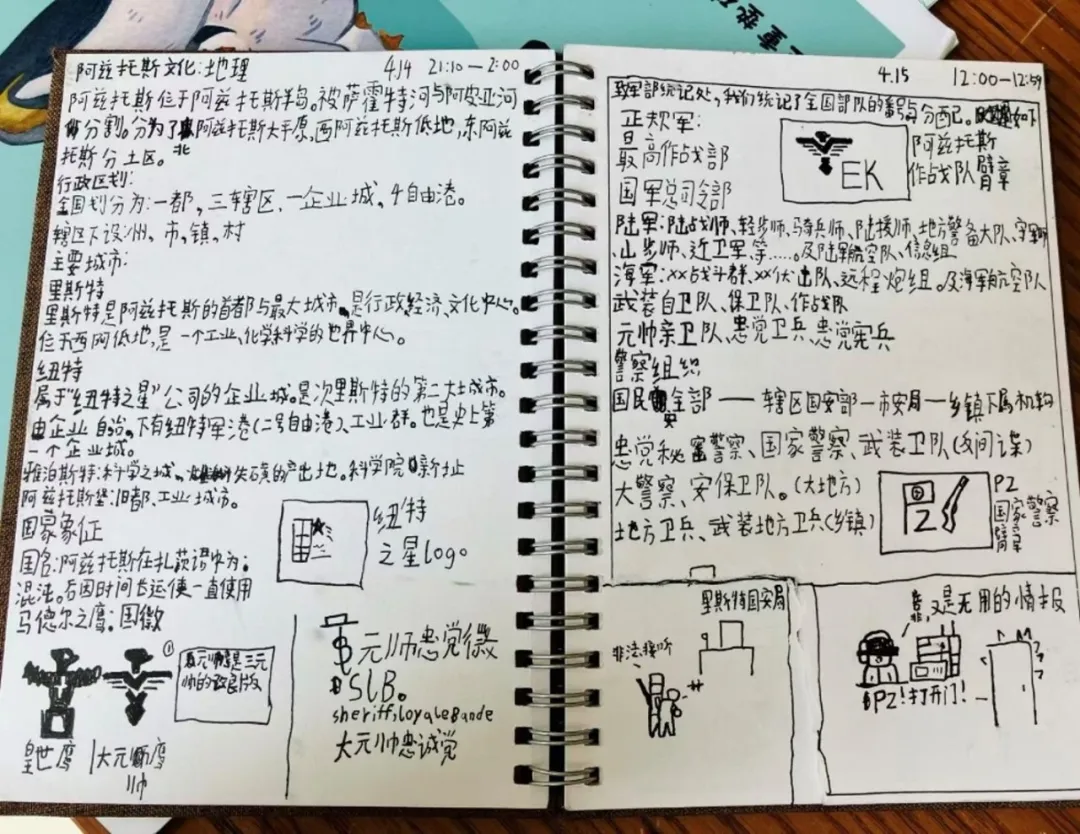 阿兹托斯文化:地理 4.14 21:10—2:00
阿兹托斯位于阿兹托斯半岛。被萨霍特河与阿皮亚河
分割。分为了阿兹托斯大平原,西阿兹托斯低地,东阿兹
托斯分土区。北
行政区划:
全国划分为:一都,三车辖区,一企业城,4自由港。
辖区下设州、市,镇,村
主要城市:
里斯特
里斯特是阿兹托斯的首都与最大城市。是行政经济、文化中心。
位于西阿低地,是一个工业、化学科学的世界中心。
纽特
属于“纽特之星”公司的企业城。是次里斯特的第二大城市。
由企业自治。下有纽特军港(二号自由港)、工业群。也是史上第
一个企业城。
雅泊斯特:科学之城、失磺的产出地。科学院新址
阿兹托斯堡:旧都、工业城市。
国家象征
国名:阿兹托斯在扎萩谓中为:
混沌。后因时间长远使一直使用
马德尔之鹰:国徽
纽特
之星logo
①
元帅是三元
帅的改良版
皇世鹰
大元帅鹰
帅
元帅忠党徽
SLB。
sheriffsloyaleBande
大元帅忠诚党
4.15 12:00—12:59
致军部统记处,我们统记了全国部队的番号与分配。如下
正规军:
最高作战部
国军总司令部
EK
阿兹托斯
作战队臂章
陆军:陆战师、轻步师、骑兵师、陆援师、地方警备大队、
山步师、近卫军等……及陆军航空队、信息组
海军:xx战斗群、xx伏出队、远程炮组。及海军航空队
武装自卫队、保卫队、作战队
元帅亲卫队、忠党卫兵、忠党宪兵
警察组织
国民安全部——辖区国安部—市安局—乡镇下属机构
忠党秘密警察、国家警察、武装卫队(反间谍)
大警察、安保卫队。(大地方)
地方卫兵、武装地方卫兵(乡镇)
PZ
PZ
国家警察
臂章
里斯特国安局
非法接听
又是无用的情报
PZ!打开门!